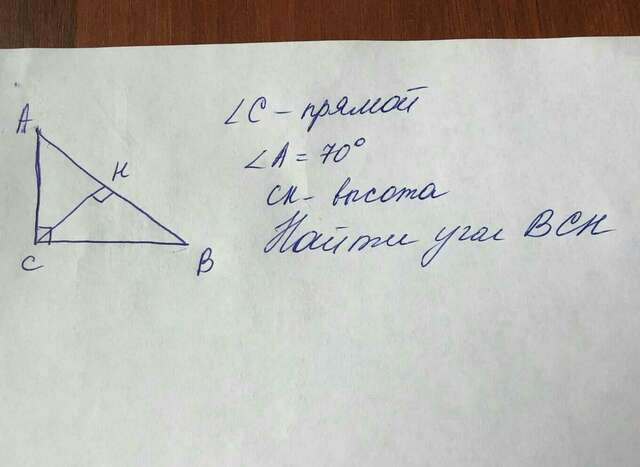 A
H
C
B
∠C - прямой
∠A = 70°
CH - высота
Найти угол BCH